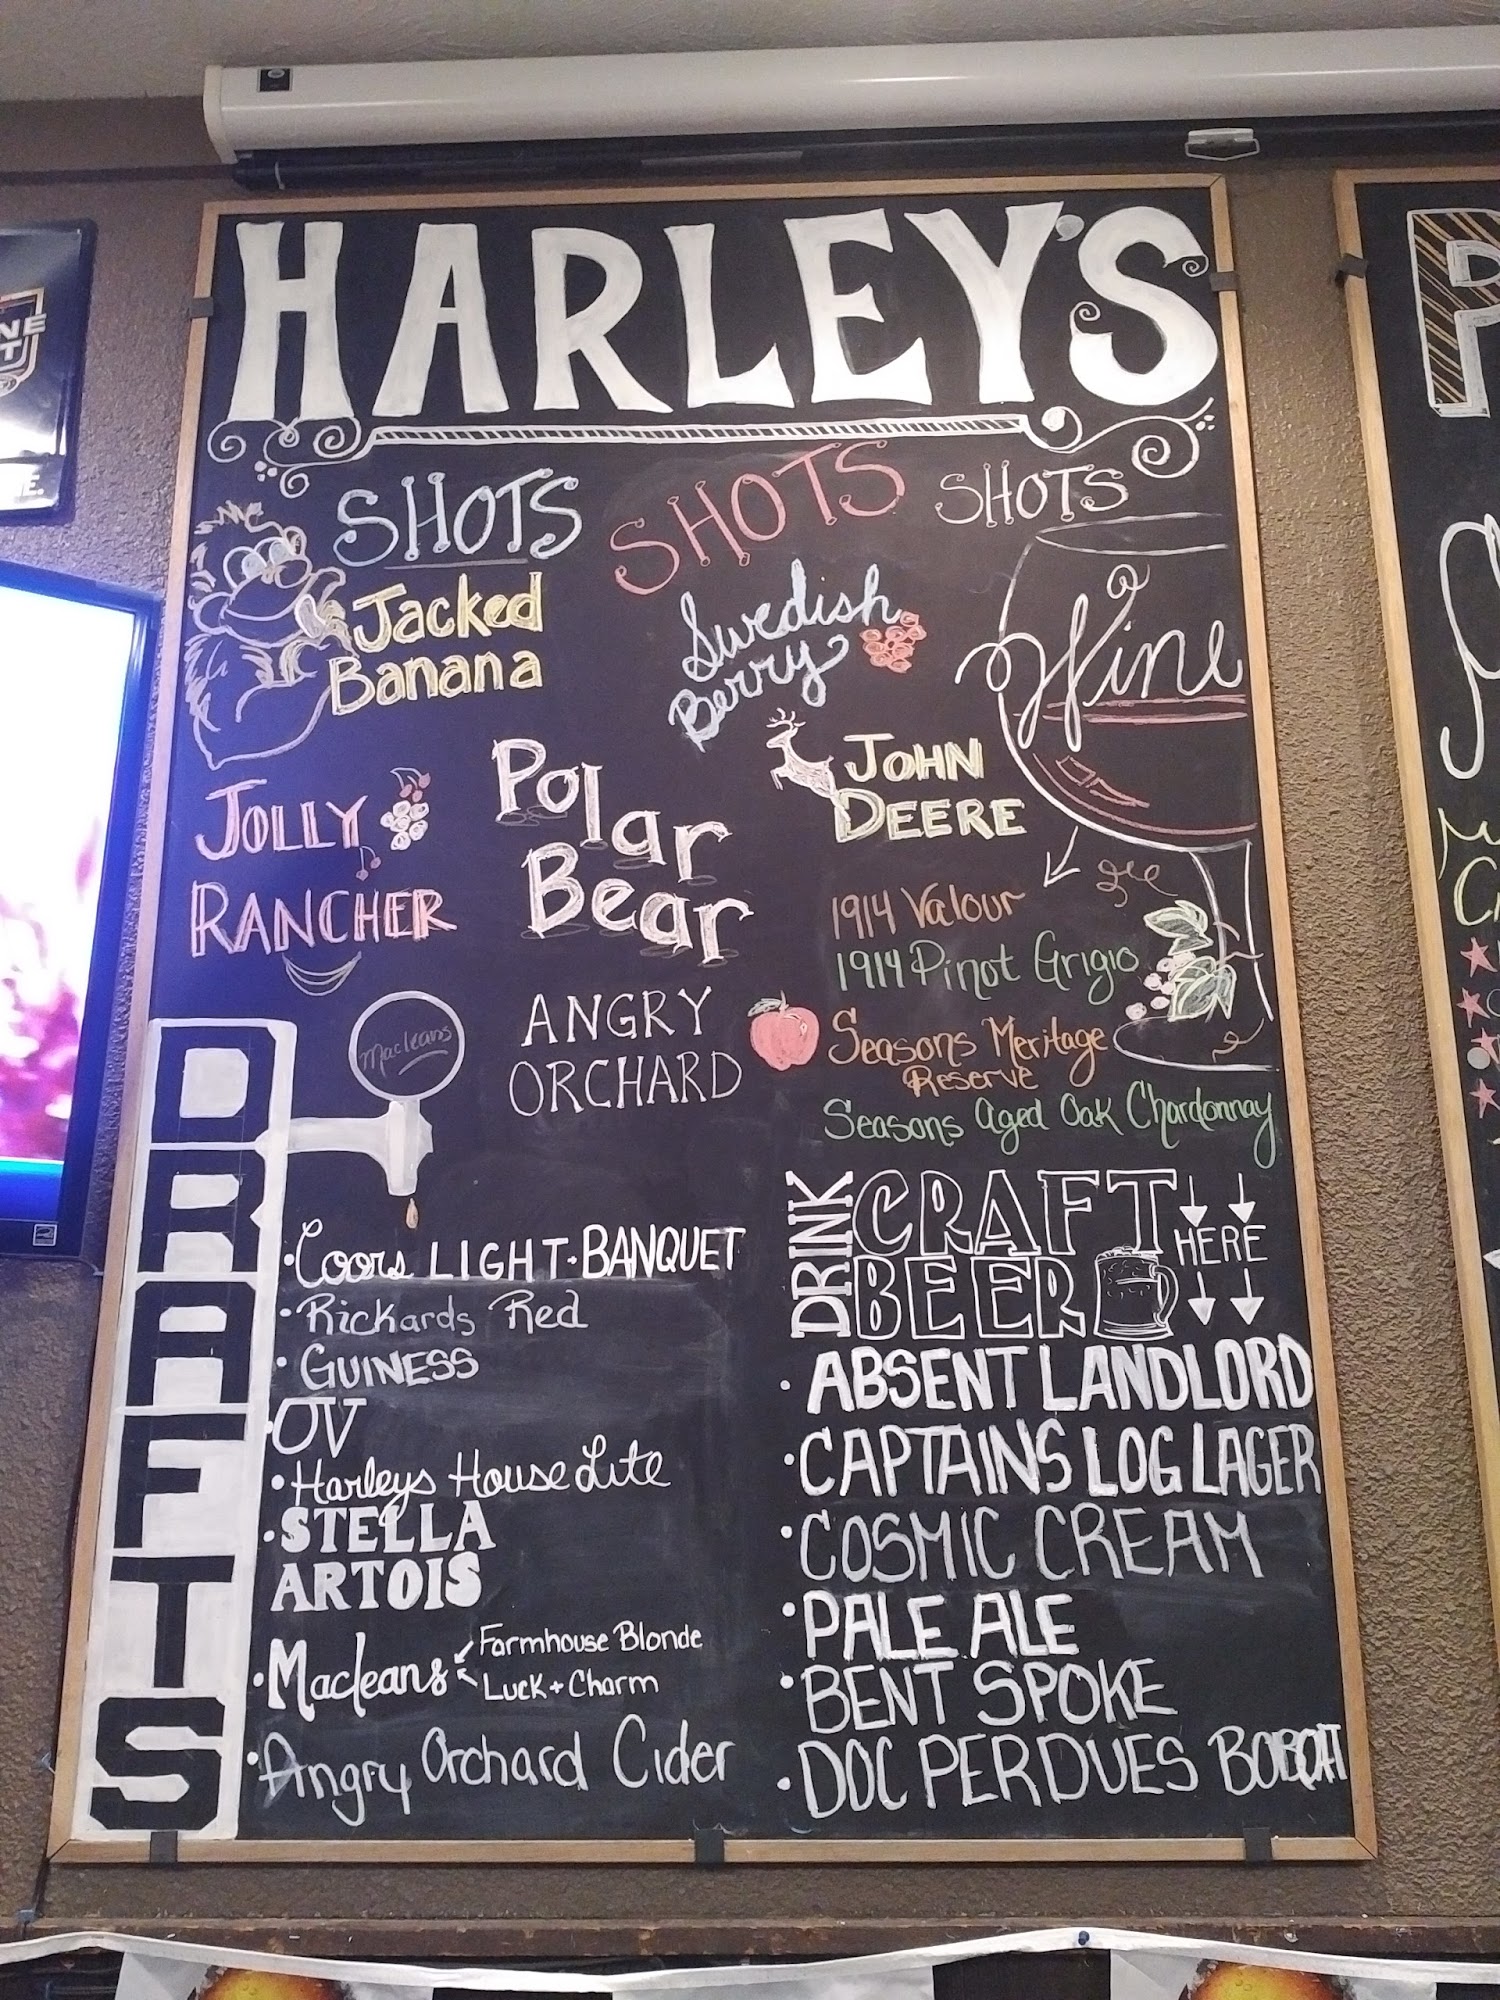 HARLEY'S
SHOTS SHOTS SHOTS
Jacked
Banana
Swedish
Berry
Wine
JOLLY
RANCHER
Polar
Bear
JOHN
DEERE
1914 Valour
1914 Pinot Grigio
Seasons Meritage
Reserve
Seasons Aged Oak Chardonnay
ANGRY
ORCHARD
macleans
DRAFTS
•Coors LIGHT•BANQUET
•Rickards Red
•GUINESS
•OV
•Harleys House Lite
•STELLA
ARTOIS
•Macleans
Farmhouse Blonde
Luck + Charm
•Angry Orchard Cider
DRINK
CRAFT
BEER
HERE
•ABSENT LANDLORD
•CAPTAINS LOG LAGER
•COSMIC CREAM
•PALE ALE
•BENT SPOKE
•DOC PERDUES BOBCAT